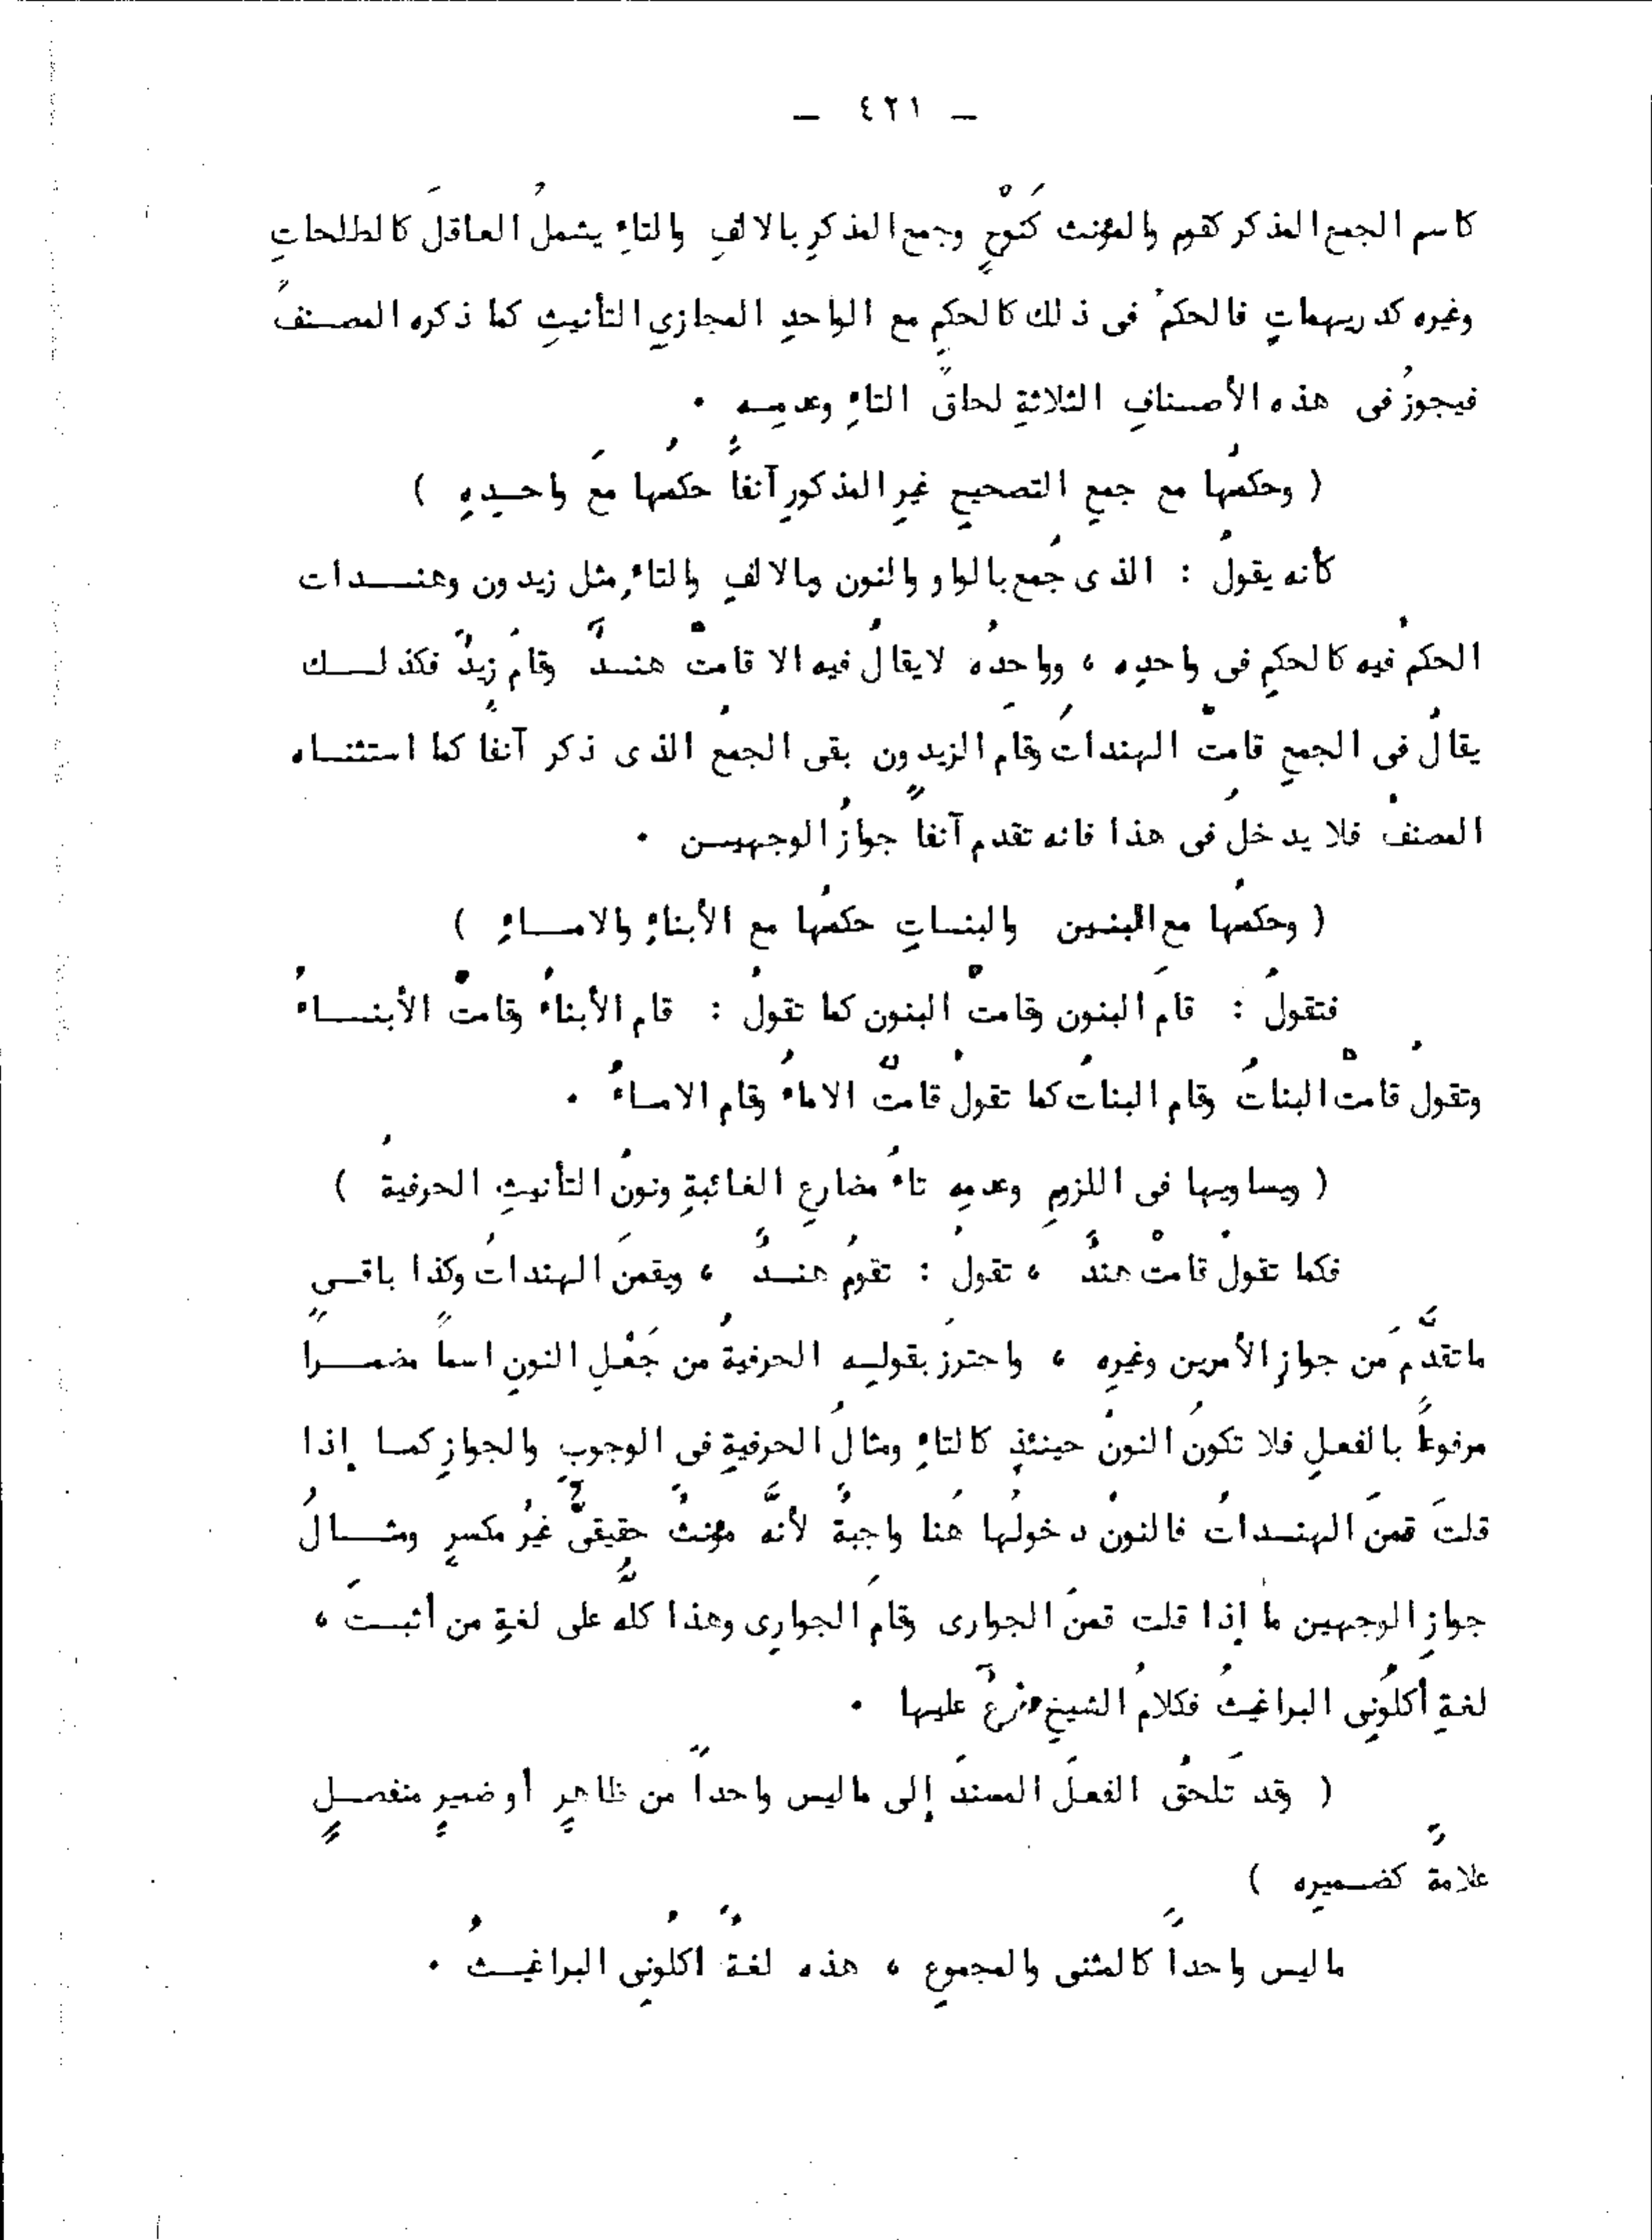 — ٤٢١ —
كاسم الجمع المذكر كقوم والمؤنث كنَوْحٍ وجمع المذكرِ بالالفِ والتاءِ يشملُ العاقلَ كالطلحاتِ
وغيره كدريهماتٍ فالحكمُ فى ذلك كالحكمِ مع الواحدِ المجازيِ التأنيثِ كما ذكره المصنفُ
فيجوزُ فى هذه الأصنافِ الثلاثةِ لحاقُ التاءِ وعدمِـه ٠
( وحكمُها مع جمعِ التصحيحِ غيرِ المذكورِ آنفاً حكمُها مَع واحـدِهِ )
كأنه يقولُ : الذى جُمع بالواو والنون وبالالفِ والتاءِ مثل زيدون وهنـــدات
الحكمُ فيه كالحكمِ فى واحدِه ، وواحدُه لايقالُ فيه الا قامتْ هنـدٌ وقامَ زيدٌ فكذلــك
يقالُ فى الجمعِ قامتْ الهنداتُ وقامَ الزيدون بقى الجمعُ الذى ذكر آنفا كما استثنـاه
المصنفُ فلا يدخلُ فى هذا فانه تقدم آنفاً جوازُ الوجهيـن ٠
( وحكمُها مع البنـين والبنـاتِ حكمُها مع الأبناءِ والامـــاءِ )
فتقولُ : قامَ البنون وقامتْ البنون كما تقولُ : قام الأبناءُ وقامتْ الأبنـــاءُ
وتقولُ قامتْ البناتُ وقام البناتُ كما تقولُ قامتْ الاماءُ وقام الامـاءُ ٠
( ويساويها فى اللزومِ وعدمِهِ تاءُ مضارعِ الغائبةِ ونونُ التأنيثِ الحرفيةُ )
فكما تقولُ قامتْ هندٌ ، تقولُ : تقومُ هنـدٌ ، ويقمنَ الهنداتُ وكذا باقـى
ماتقدَّم مَن جوازِ الأمرين وغيرِه ، واحترزَ بقولِـه الحرفيةُ من جَعْلِ النونِ اسماً مضمـــراً
مرفوعاً بالفعلِ فلا تكونُ النونُ حينئذٍ كالتاءِ ومثالُ الحرفيةِ فى الوجوبِ والجوازِ كمـا إذا
قلتَ قمنَ الهنـداتُ فالنونُ دخولُها هَنا واجبةٌ لأنَّه مؤنثٌ حقيقىٌّ غيرُ مكسرٍ ومثـــالُ
جوازِ الوجهين ما إذا قلت قمنَ الجوارى وقامَ الجوارِى وهذا كلُّه على لغةِ من أثبـتَ ،
لغةِ أكلُونِى البراغيثُ فكلامُ الشيخِ مفرعٌ عليها ٠
( وقد تَلحقُ الفعلَ المسندَ إلى ماليس واحداً من ظاهرٍ أو ضميرٍ منفصـلٍ
علامةٌ كضـميرِه )
ماليس واحداً كالمثنى والمجموعِ ، هذه لغةُ اكلُونِى البراغيـثُ ٠